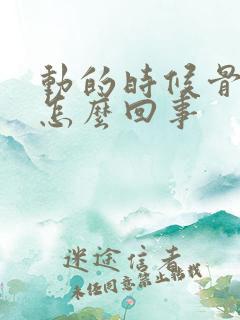 動的時候骨
怎麼回事
迷途信者
未經同意禁止轉載